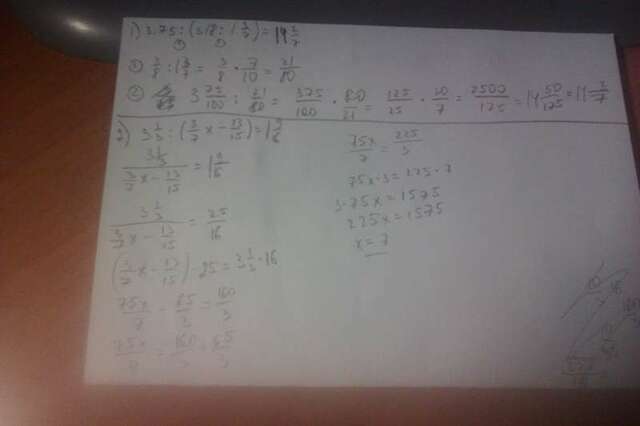 1) 3.75 : (3/8 : 1 3/7) = 14 2/7
① 3/8 : 1 3/7 = 3/8 · 7/10 = 21/80
② 3 75/100 : 21/80 = 375/100 · 80/21 = 125/25 · 20/7 = 2500/175 = 14 50/175 = 14 2/7
2) 3 1/3 : (3/7 x - 13/15) = 1 9/16
3 1/3 / (3/7 x - 13/15) = 1 9/16
3 1/3 / (3/7 x - 13/15) = 25/16
(3/7 x - 13/15) · 25 = 3 1/3 · 16
75x/7 - 65/3 = 160/3
75x/7 = 160/3 + 65/3
75x/7 = 225/3
75x · 3 = 225 · 7
3 · 75x = 1575
225x = 1575
x = 7